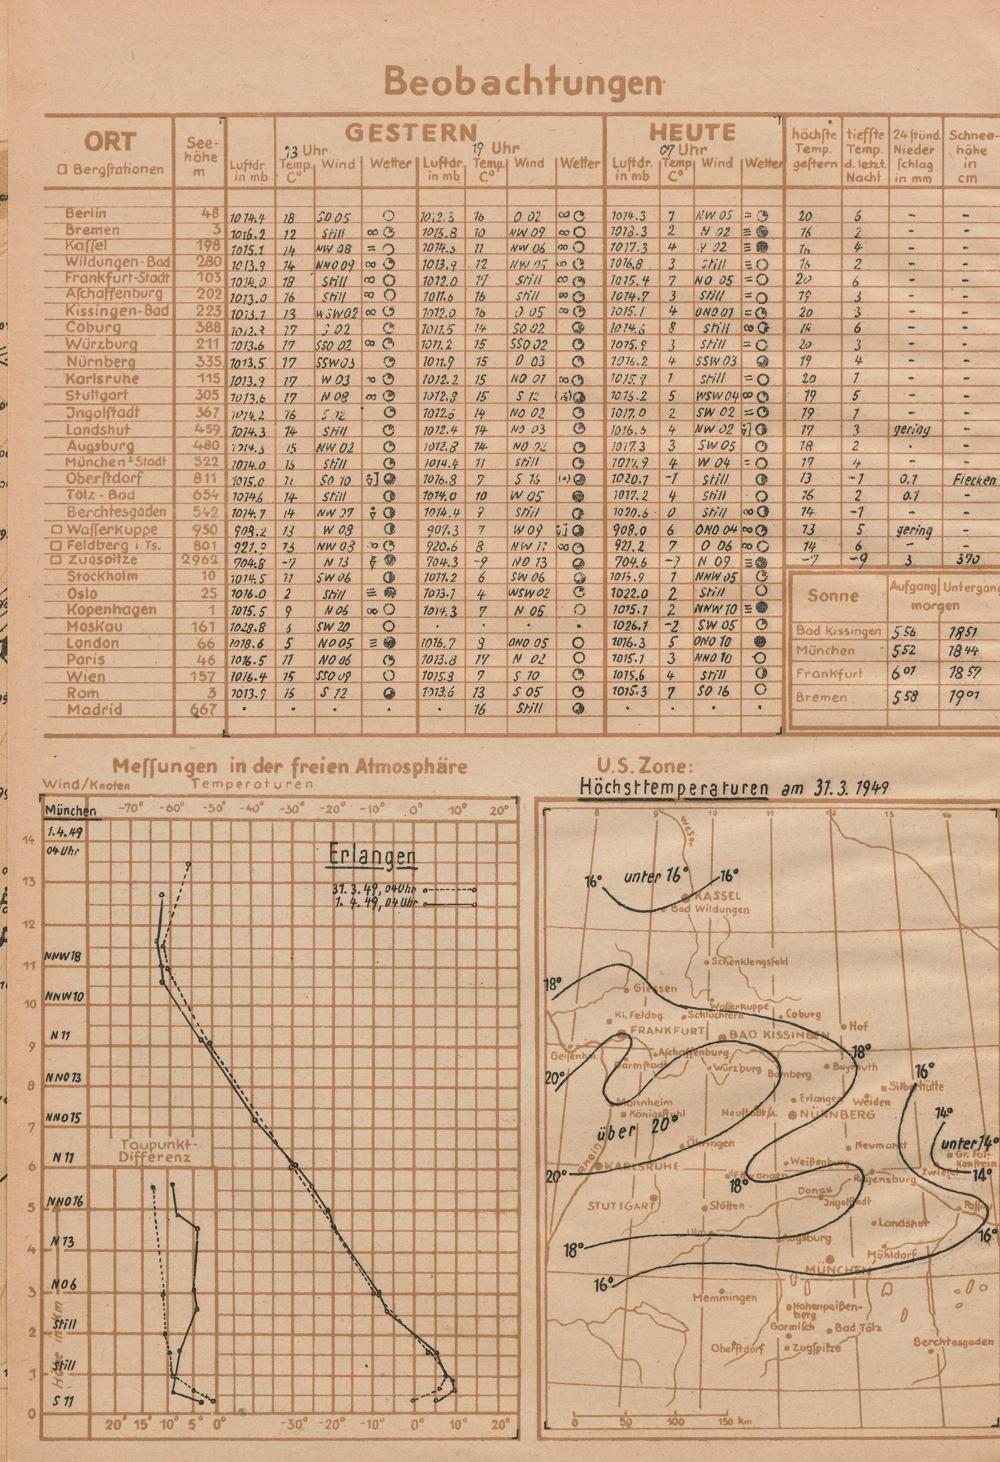 Beobachtungen
ORT
□ Bergstationen
See-
höhe
m
GESTERN
13 Uhr
Luftdr. in mb
Temp. C°
Wind
Wetter
19 Uhr
Luftdr. in mb
Temp. C°
Wind
Wetter
HEUTE
07 Uhr
Luftdr. in mb
Temp. C°
Wind
Wetter
höchste Temp. geſtern
tiefſte Temp. d. letzt. Nacht
24 ſtünd. Nieder ſchlag in mm
Schnee- höhe in cm
Berlin 48 1014.4 18 SO 05 16 O 02 1014.3 7 NW 05 20 6 - -
Bremen 3 1016.2 12 Still 1015.8 10 NW 09 2 N 02 16 2 - -
Kaſſel 198 1015.1 14 NW 08 1014.5 11 NW 06 1017.3 4 4 - -
Wildungen-Bad 280 1013.9 14 NNO 09 1013.9 12 1016.8 3 Still 2 - -
Frankfurt-Stadt 103 1014.0 18 Still 1012.0 17 Still 1015.4 7 NO 05 20 6 - -
Aſchaffenburg 202 1013.0 16 Still 1011.6 16 Still 1014.7 3 Still 19 3 - -
Kissingen-Bad 223 1013.1 13 WSW 02 1012.0 16 O 05 1015.1 4 ONO 01 20 3 - -
Coburg 388 17 1011.5 14 SO 02 1014.6 8 Still 6 - -
Würzburg 211 1013.6 17 SSO 02 1011.2 15 SSO 02 3 Still 20 3 - -
Nürnberg 335 1013.5 17 SSW 03 1011.9 15 O 03 1016.2 4 SSW 03 19 4 - -
Karlsruhe 115 1013.9 17 W 03 1012.2 15 NO 01 1 Still 20 1 - -
Stuttgart 305 1013.6 17 N 08 1012.8 15 S 12 5 WSW 04 19 5 - -
Ingolſtadt 367 1014.2 16 1012.6 14 NO 02 1017.0 2 SW 02 19 1 - -
Landshut 459 1014.3 14 Still 1012.4 14 NO 03 1016.6 4 NW 02 17 3 gering -
Augsburg 480 15 NW 02 1012.8 14 NO 02 1017.3 3 SW 05 18 2 - -
München-Stadt 522 1014.0 Still 1014.4 11 Still 4 W 04 17 4 - -
Oberſtdorf 811 1015.0 11 SO 10 1016.8 7 S 16 1020.1 -1 Still 13 -1 0.1 Flecken
Tölz-Bad 654 14 Still 1014.0 10 W 05 1017.2 4 Still 16 2 0.1 -
Berchtesgaden 542 1014.7 14 1014.4 Still 1020.6 0 Still 14 -1 - -
□ Waſſerkuppe 950 908.2 13 W 08 907.3 7 W 09 908.0 6 ONO 04 13 5 gering -
□ Feldberg i. Ts. 801 13 NW 03 920.6 8 921.2 7 O 06 14 6 - -
□ Zugſpitze 2962 704.8 -7 N 13 704.3 -9 NO 13 704.6 N 09 -7 -9 3 370
Stockholm 10 1014.5 11 SW 06 1011.2 6 SW 06 1015.9 1 NNW 05
Oslo 25 1016.0 2 Still 1013.1 4 WSW 02 1022.0 2 Still
Kopenhagen 1 1015.5 9 N 06 1014.3 7 N 05 1015.1 2 NNW 10
Moskau 161 1028.8 SW 20 . . . 1026.1 -2 SW 05
London 66 1018.6 5 NO 05 1016.7 9 ONO 05 1016.3 5 ONO 10
Paris 46 1016.5 11 NO 06 1013.8 17 N 02 1015.1 3 NNO 10
Wien 157 1016.4 15 SSO 09 1015.8 7 S 10 1015.6 4 Still
Rom 3 1013.9 16 S 12 1013.6 13 S 05 1015.3 7 SO 16
Madrid 667 . . . . 16 Still . . . .
Sonne
Aufgang Untergang
morgen
Bad Kissingen 5 56 18 51
München 5 52 18 44
Frankfurt 6 01 18 57
Bremen 5 58 19 01
Meſſungen in der freien Atmosphäre
Wind/Knoten
Temperaturen
München -70° -60° -50° -40° -30° -20° -10° 0° 10° 20°
1.4.49
04 Uhr
Erlangen
31.3.49, 04 Uhr
1.4.49, 04 Uhr
14
13
12
NNW 18
11
NNW 10
10
N 11
9
NNO 13
8
NNO 15
7
Taupunkt-
Differenz
N 11
6
NNO 16
5
N 13
4
NO 6
3
Still
2
Still
1
S 11
0
Höhe in km
20° 15° 10° 5° 0° -30° -20° -10° 0° 10° 20°
U.S. Zone:
Höchsttemperaturen am 31.3.1949
8 9 10 11 12 13 14
16° unter 16° 16°
KASSEL
Bad Wildungen
Schenklengsfeld
18°
Giessen
Waſſerkuppe
Kl. Feldbg.
Schlüchtern
Coburg
FRANKFURT
BAD KISSINGEN
Hof
Geisenhm.
Aſchaffenburg
18°
Darmstadt
Würzburg
Bamberg
Bayreuth
16°
20°
Silberhütte
Mannheim
Erlangen
Weiden
14°
Königsſtuhl
NÜRNBERG
über 20°
Öhringen
Neumarkt
unter 14°
Rhein
KARLSRUHE
Weißenburg
20°
Ellwangen
18°
Regensburg
Zwieſel
14°
Donau
STUTTGART
Stötten
Ingolſtadt
Paſſau
Landshut
16°
18°
Ulm
Augsburg
Mühldorf
16°
MÜNCHEN
Memmingen
Hohenpeißen-
berg
Garmiſch
Bad Tölz
Oberſtdorf
Zugſpitze
Berchtesgaden
0 50 100 150 km